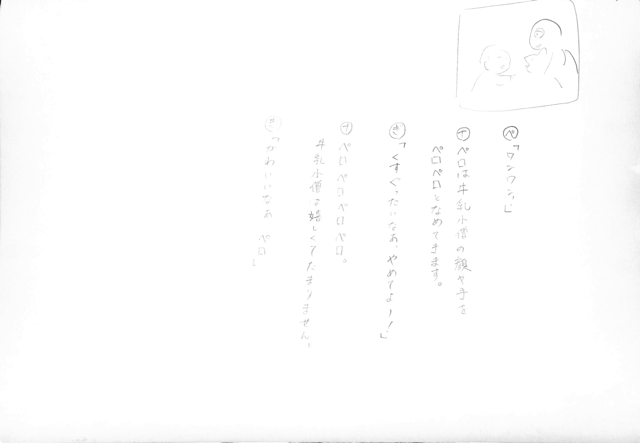 ペ「ワンワン！」
ナ ペロは牛乳小僧の顔や手を
ペロペロとなめてきます。
ぎ「くすぐったいなあ、やめてよー！」
ナ ペロペロペロペロ。
牛乳小僧は嬉しくてたまりません。
ぎ「かわいいなあ ペロ」